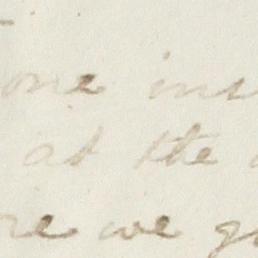 one ins
at the
re we g